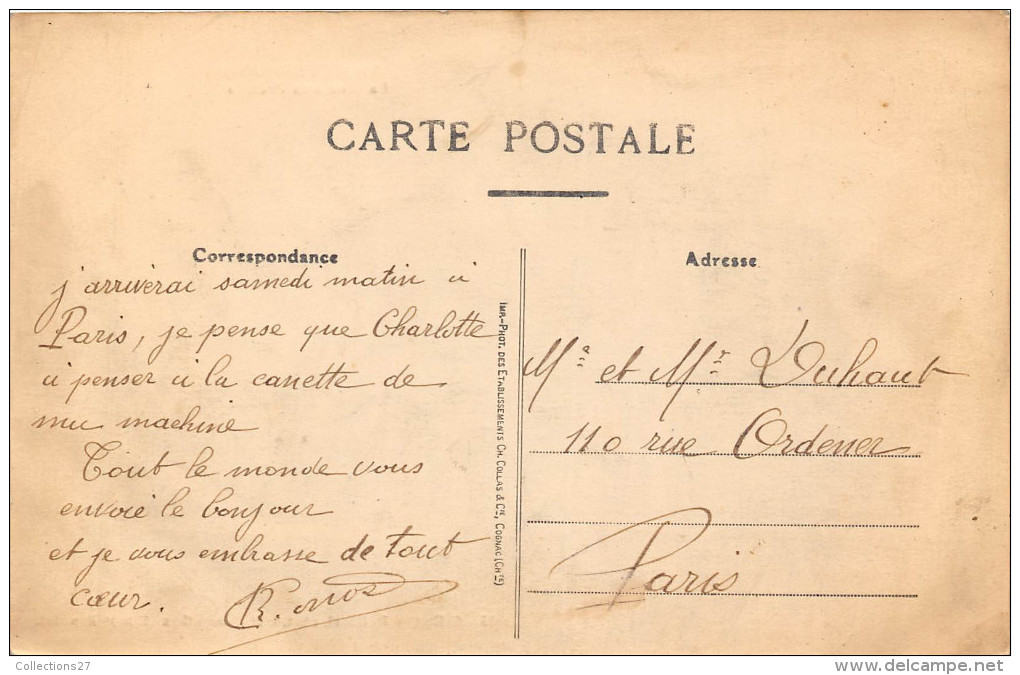 CARTE POSTALE
Correspondance
j'arriverai samedi matin à
Paris, je pense que Charlotte
à penser à la canette de
ma machine
Tout le monde vous
envoie le bonjour
et je vous embrasse de tout
cœur.
IMP.-PHOT. DES ETABLISSEMENTS CH. COLLAS & Cie, COGNAC (CHTE)
Adresse
et Mr Duhaut
110 rue Ordener
Paris
Collections27
delcampe.net